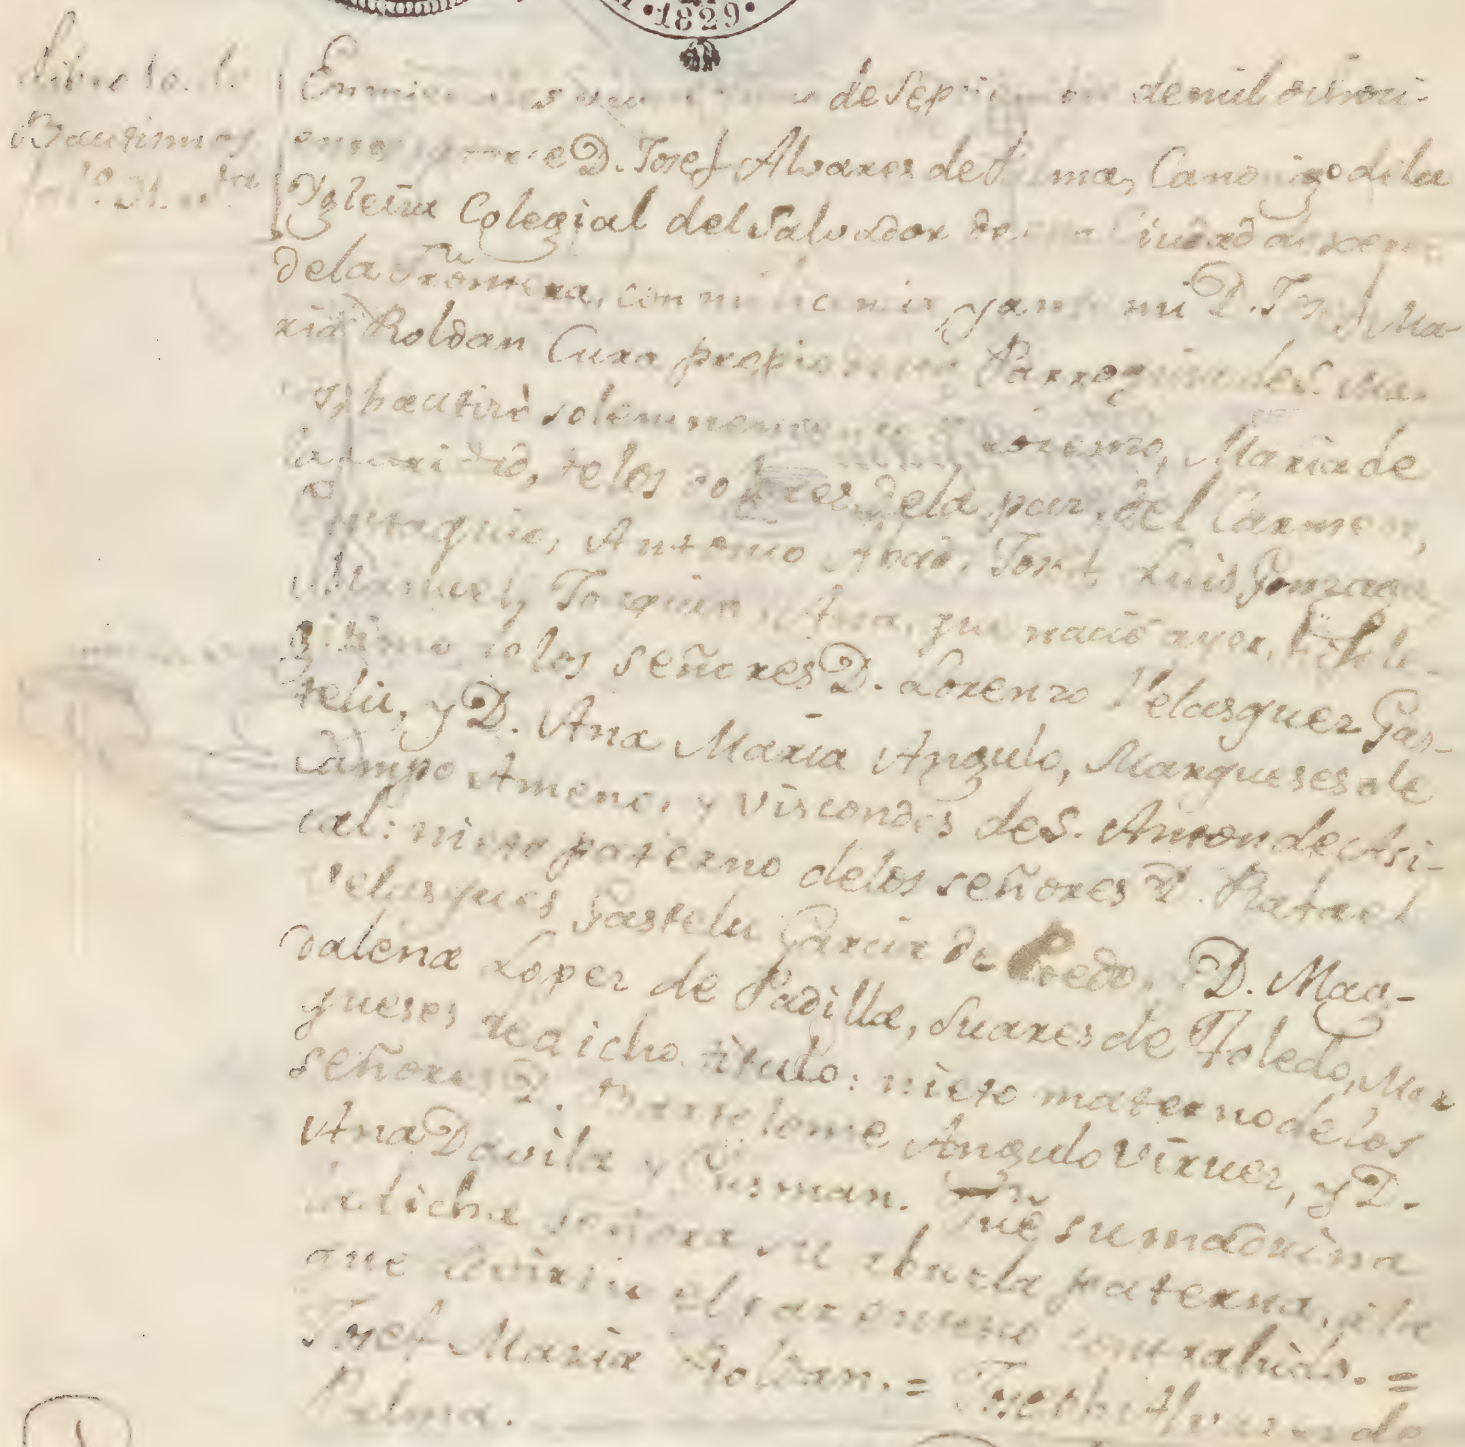 1829
Libro 10. de
Bautismos
fol.º 21. vta
En miercoles de Septiembre de mil ochoci-
entos catorce D. Josef Alvares de Palma, Canonigo de la
Ygleria Colegial del Salvador de esta Ciudad de Xerez
de la Frontera, con mi licencia y ante mi D. Josef Ma-
ria Roldan Cura propio de la Parroquia de S. Mar-
cos, bautizò solemnemente à Lorenzo, Maria de
la Caridad, de los Dolores, de la paz, del Carmen,
Eustaquio, Antonio Abad, José, Luis Gonzaga,
Manuel, Joaquin, Ana, que nació ayer, hijo le-
gitimo de los señores D. Lorenzo Velasquez Gas-
telu, y D. Ana Maria Angulo, Marqueses de
Campo Ameno, y Viscondes de S. Anton de Asi-
cal: nieto paterno de los señores D. Rafael
Velasques Gastelu Garcia de Poedo, D. Mag-
dalena Lopez de Padilla, Suares de Toledo, Mar
queses de dicho titulo: nieto materno de los
señores D. Bartolome Angulo Viruez, y D.
Ana Davila y Gusman. Fuè su madrina
la dicha señora su abuela paterna, à la
que advirtio el parentesco contrahido. =
Josef Maria Roldan. = Joseph Alvares de
Palma.